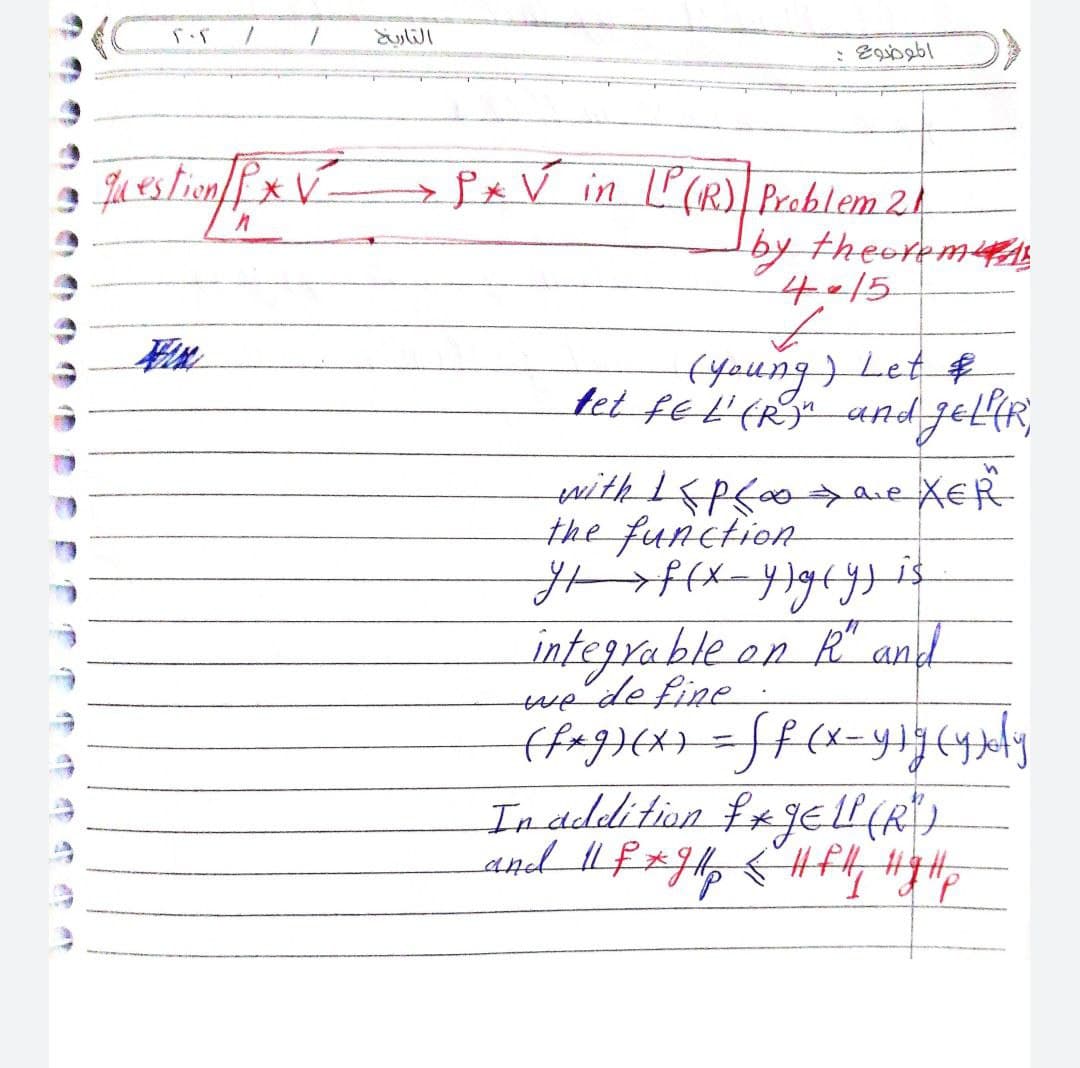 الموضوع :
التاريخ / / ٢٠٢
question/ ρₙ * V́ → ρ * V́ in Lᴾ(R) Problem 21
by theorem
4.15
(young) Let
let f∈L'(R)ⁿ and g∈Lᴾ(R)
with 1⩽p⩽∞ ⇒ a.e X∈Rⁿ
the function
y↦f(x-y)g(y) is
integrable on Rⁿ and
we define
(f*g)(x) = ∫f(x-y)g(y)dy
In addition f*g∈Lᴾ(Rⁿ)
and ||f*g||ₚ ⩽ ||f||₁ ||g||ₚ